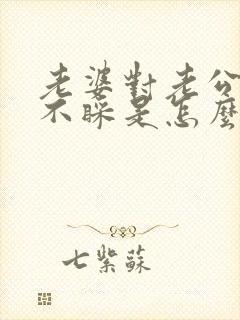 老婆對老公
不睬是怎麼
七紫蘇